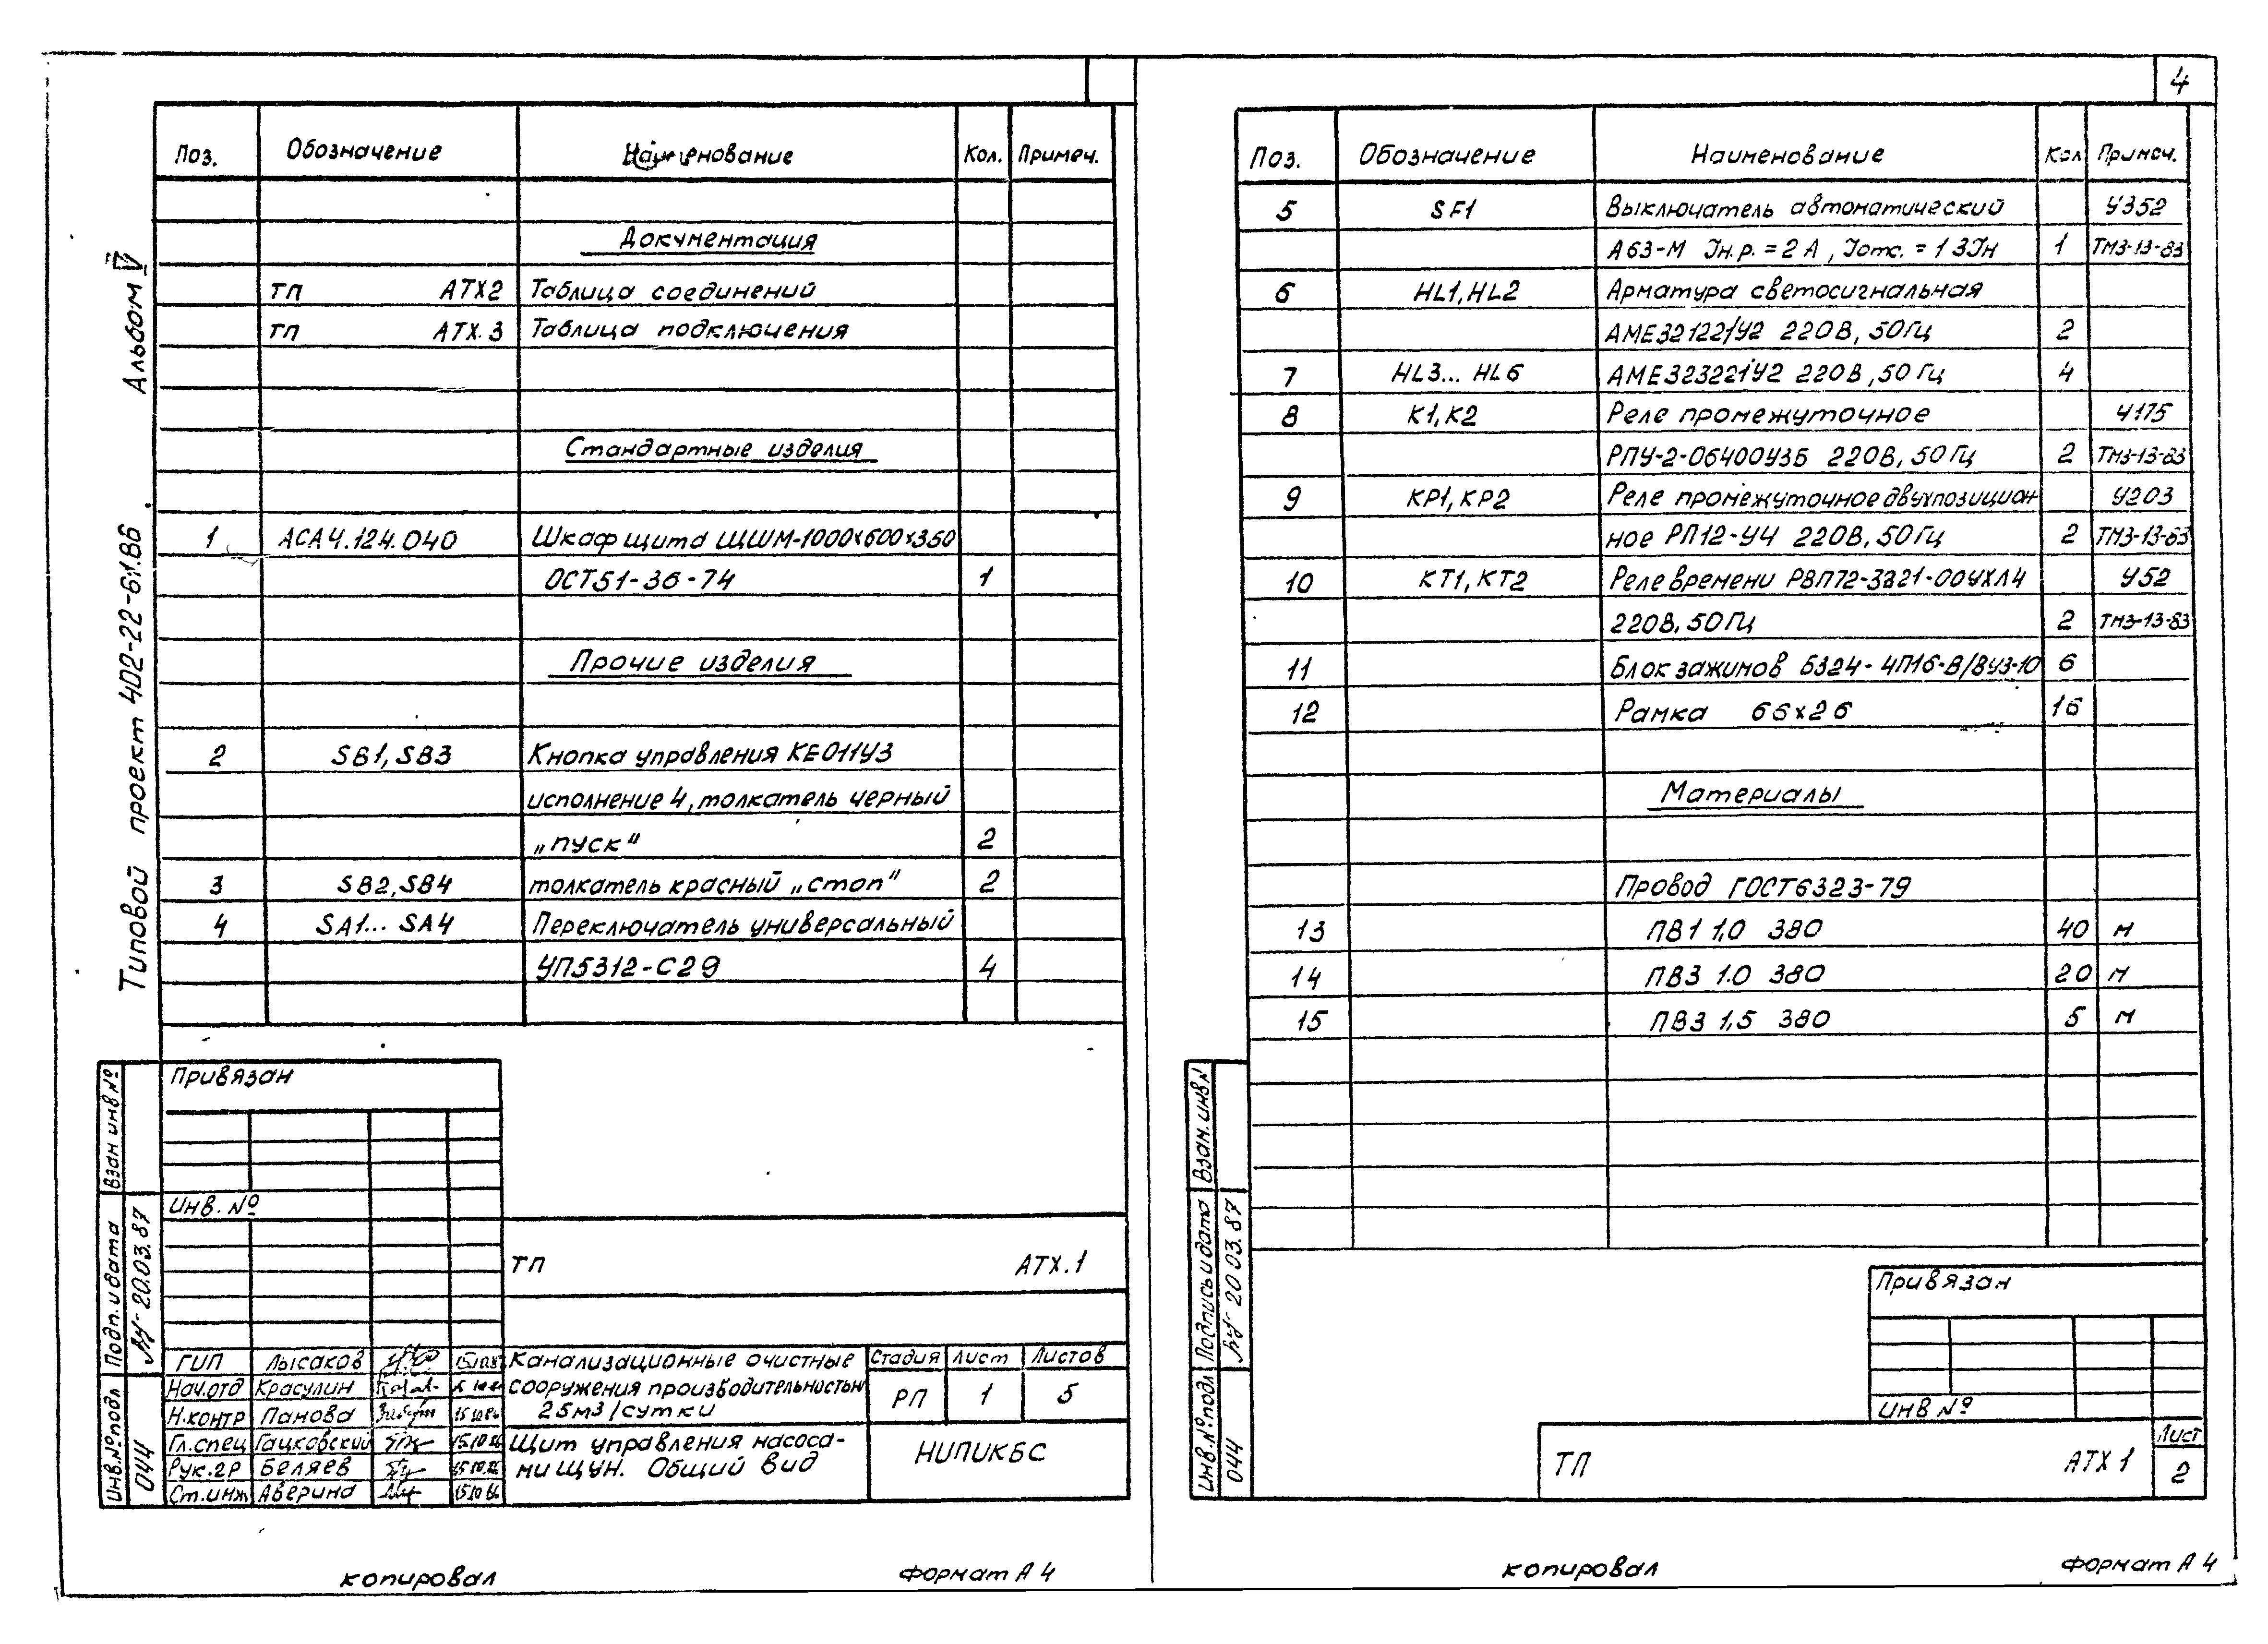 4
Альбом IV
Типовой проект 402-22-61.86
Поз. Обозначение Наименование Кол. Примеч.
Документация
ТП АТХ2 Таблица соединений
ТП АТХ.3 Таблица подключения
Стандартные изделия
1 АСА4.124.040 Шкаф щита ЩШМ-1000×600×350
ОСТ51-36-74 1
Прочие изделия
2 SB1, SB3 Кнопка управления КЕ011У3
исполнение 4, толкатель черный
„пуск“ 2
3 SB2, SB4 толкатель красный „стоп“ 2
4 SA1... SA4 Переключатель универсальный
УП5312-С29 4
Привязан
Инв. №
ТП АТХ.1
ГИП Лысаков
Нач.отд Красулин
Н.контр Панова
Гл.спец Гацковский
Рук.гр Беляев
Ст.инж Аверина
Канализационные очистные
сооружения производительностью
25м3/сутки
Щит управления насоса-
ми ЩУН. Общий вид
Стадия Лист Листов
РП 1 5
НИПИКБС
Взан инв №
Подп. и дата 20.03.87
Инв.№ подл 044
копировал Формат А4
Поз. Обозначение Наименование Кол Примеч.
5 SF1 Выключатель автоматический У352
А63-М Iн.р. = 2А, Iотс. = 1 3Iн 1 ТМ3-13-83
6 HL1, HL2 Арматура светосигнальная
АМЕ32122/У2 220В, 50Гц 2
7 HL3... HL6 АМЕ323221У2 220В, 50Гц 4
8 K1, K2 Реле промежуточное У175
РПУ-2-06400У3Б 220В, 50Гц 2 ТМ3-13-83
9 KP1, KP2 Реле промежуточное двухпозицион У203
ное РП12-У4 220В, 50Гц 2 ТМ3-13-83
10 KT1, KT2 Реле времени РВП72-3221-00УХЛ4 У52
220В, 50Гц 2 ТМ3-13-83
11 Блок зажимов Б324-4П16-В/ВУ3-10 6
12 Рамка 66×26 16
Материалы
Провод ГОСТ6323-79
13 ПВ1 1,0 380 40 м
14 ПВ3 1.0 380 20 м
15 ПВ3 1,5 380 5 м
Взам. инв.№
Подпись и дата 20 03.87
Инв.№ подл 044
Привязан
ИНВ №
ТП АТХ 1
Лист
2
копировал Формат А4